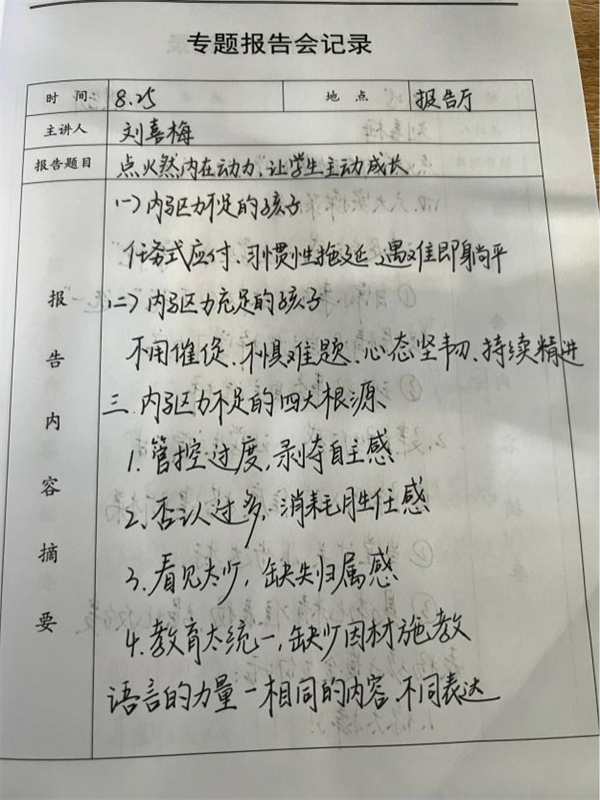 专题报告会记录
时 间: 8.25 地 点 报告厅
主讲人 刘喜梅
报告题目 点火燃内在动力,让学生主动成长
报告内容摘要
(一)内驱力不足的孩子
任务式应付、习惯性拖延 遇难即躺平
(二)内驱力充足的孩子
不用催促、不惧难题、心态坚韧、持续精进
三.内驱力不足的四大根源、
1.管控过度,剥夺自主感
2.否认过多,消耗胜任感
3.看见太少,缺失归属感
4.教育太统一,缺少因材施教
语言的力量-相同的内容,不同表达